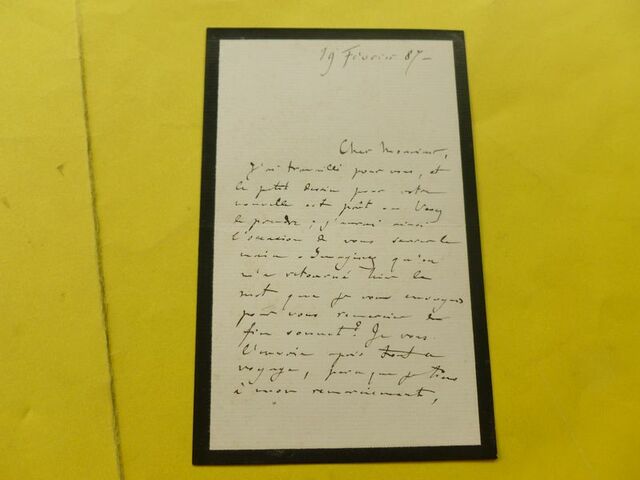 19 Février 87 -
Cher Monsieur,
J'ai travaillé pour vous, et
le petit dessin pour votre
nouvelle est prêt. Venez
le prendre ; j'aurai ainsi
l'occasion de vous serrer la
main. Imaginez qu'on
m'a retourné hier le
mot que je vous envoyais
pour vous remercier du
fin sonnet? Je vous
l'envoie après tout ce
voyage, parce que je tiens
à mon remerciement,